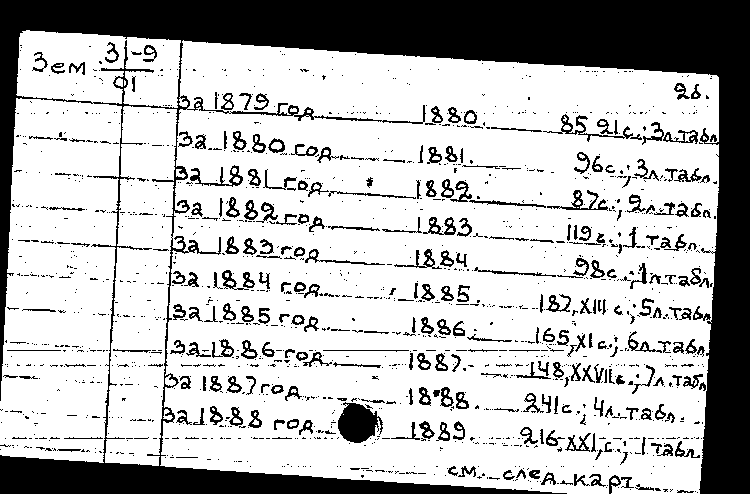 Зем 3-9
01
2б.
за 1879 год 1880. 85,21с.; 3л.табл.
за 1880 год 1881. 96с.; 3л.табл.
за 1881 год 1882. 87с.; 2л.табл.
за 1882 год 1883. 119с.; 1 табл.
за 1883 год 1884. 98с.; 1л.табл.
за 1884 год 1885. 187,XIII с.; 5л.табл.
за 1885 год 1886. 165,XIс.; 6л.табл.
за 1886 год 1887. 148,XXVIIс.; 7л.табл.
за 1887 год 1888. 241с.; 4л.табл.
за 1888 год 1889. 216,XXI,с.; 1 табл.
см. след. карт.